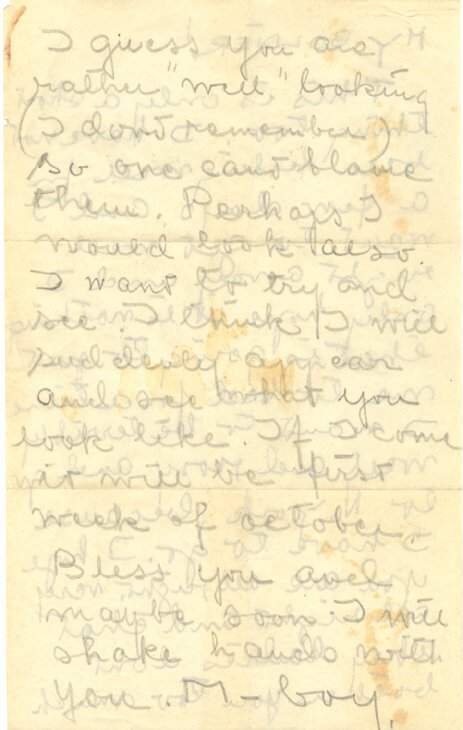 I guess you are
rather "well" looking
(I dont remember)
So one cant blame
them. Perhaps I
would look also.
I want to try and
see. I think I will
suddenly appear
and see what you
look like. If I come
it will be first
week of october.
Bless you and
maybe soon I will
shake hands with
you. M-boy.